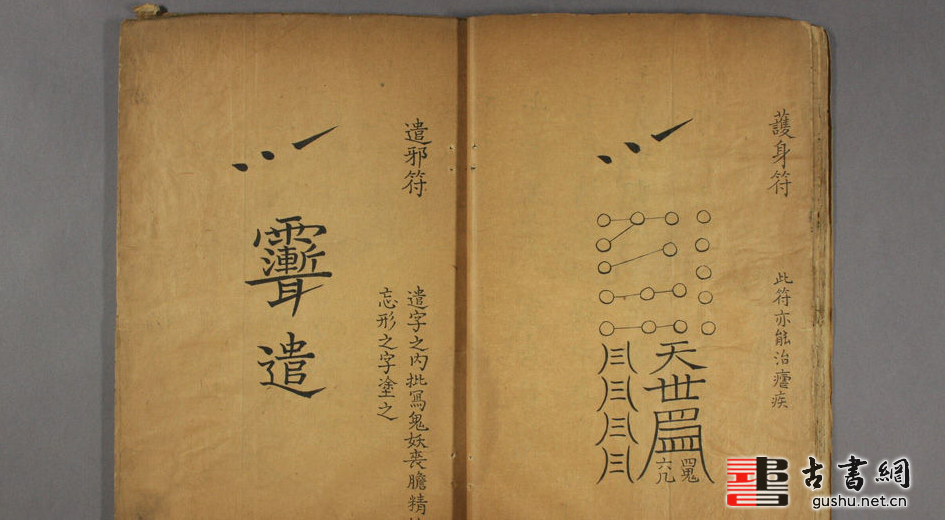 護身符
此符亦能治瘧疾
天
世
四鬼
六几
遣邪符
遣字之內批寫鬼妖喪膽精
忘形之字塗之
遣
古書網
gushu.net.cn